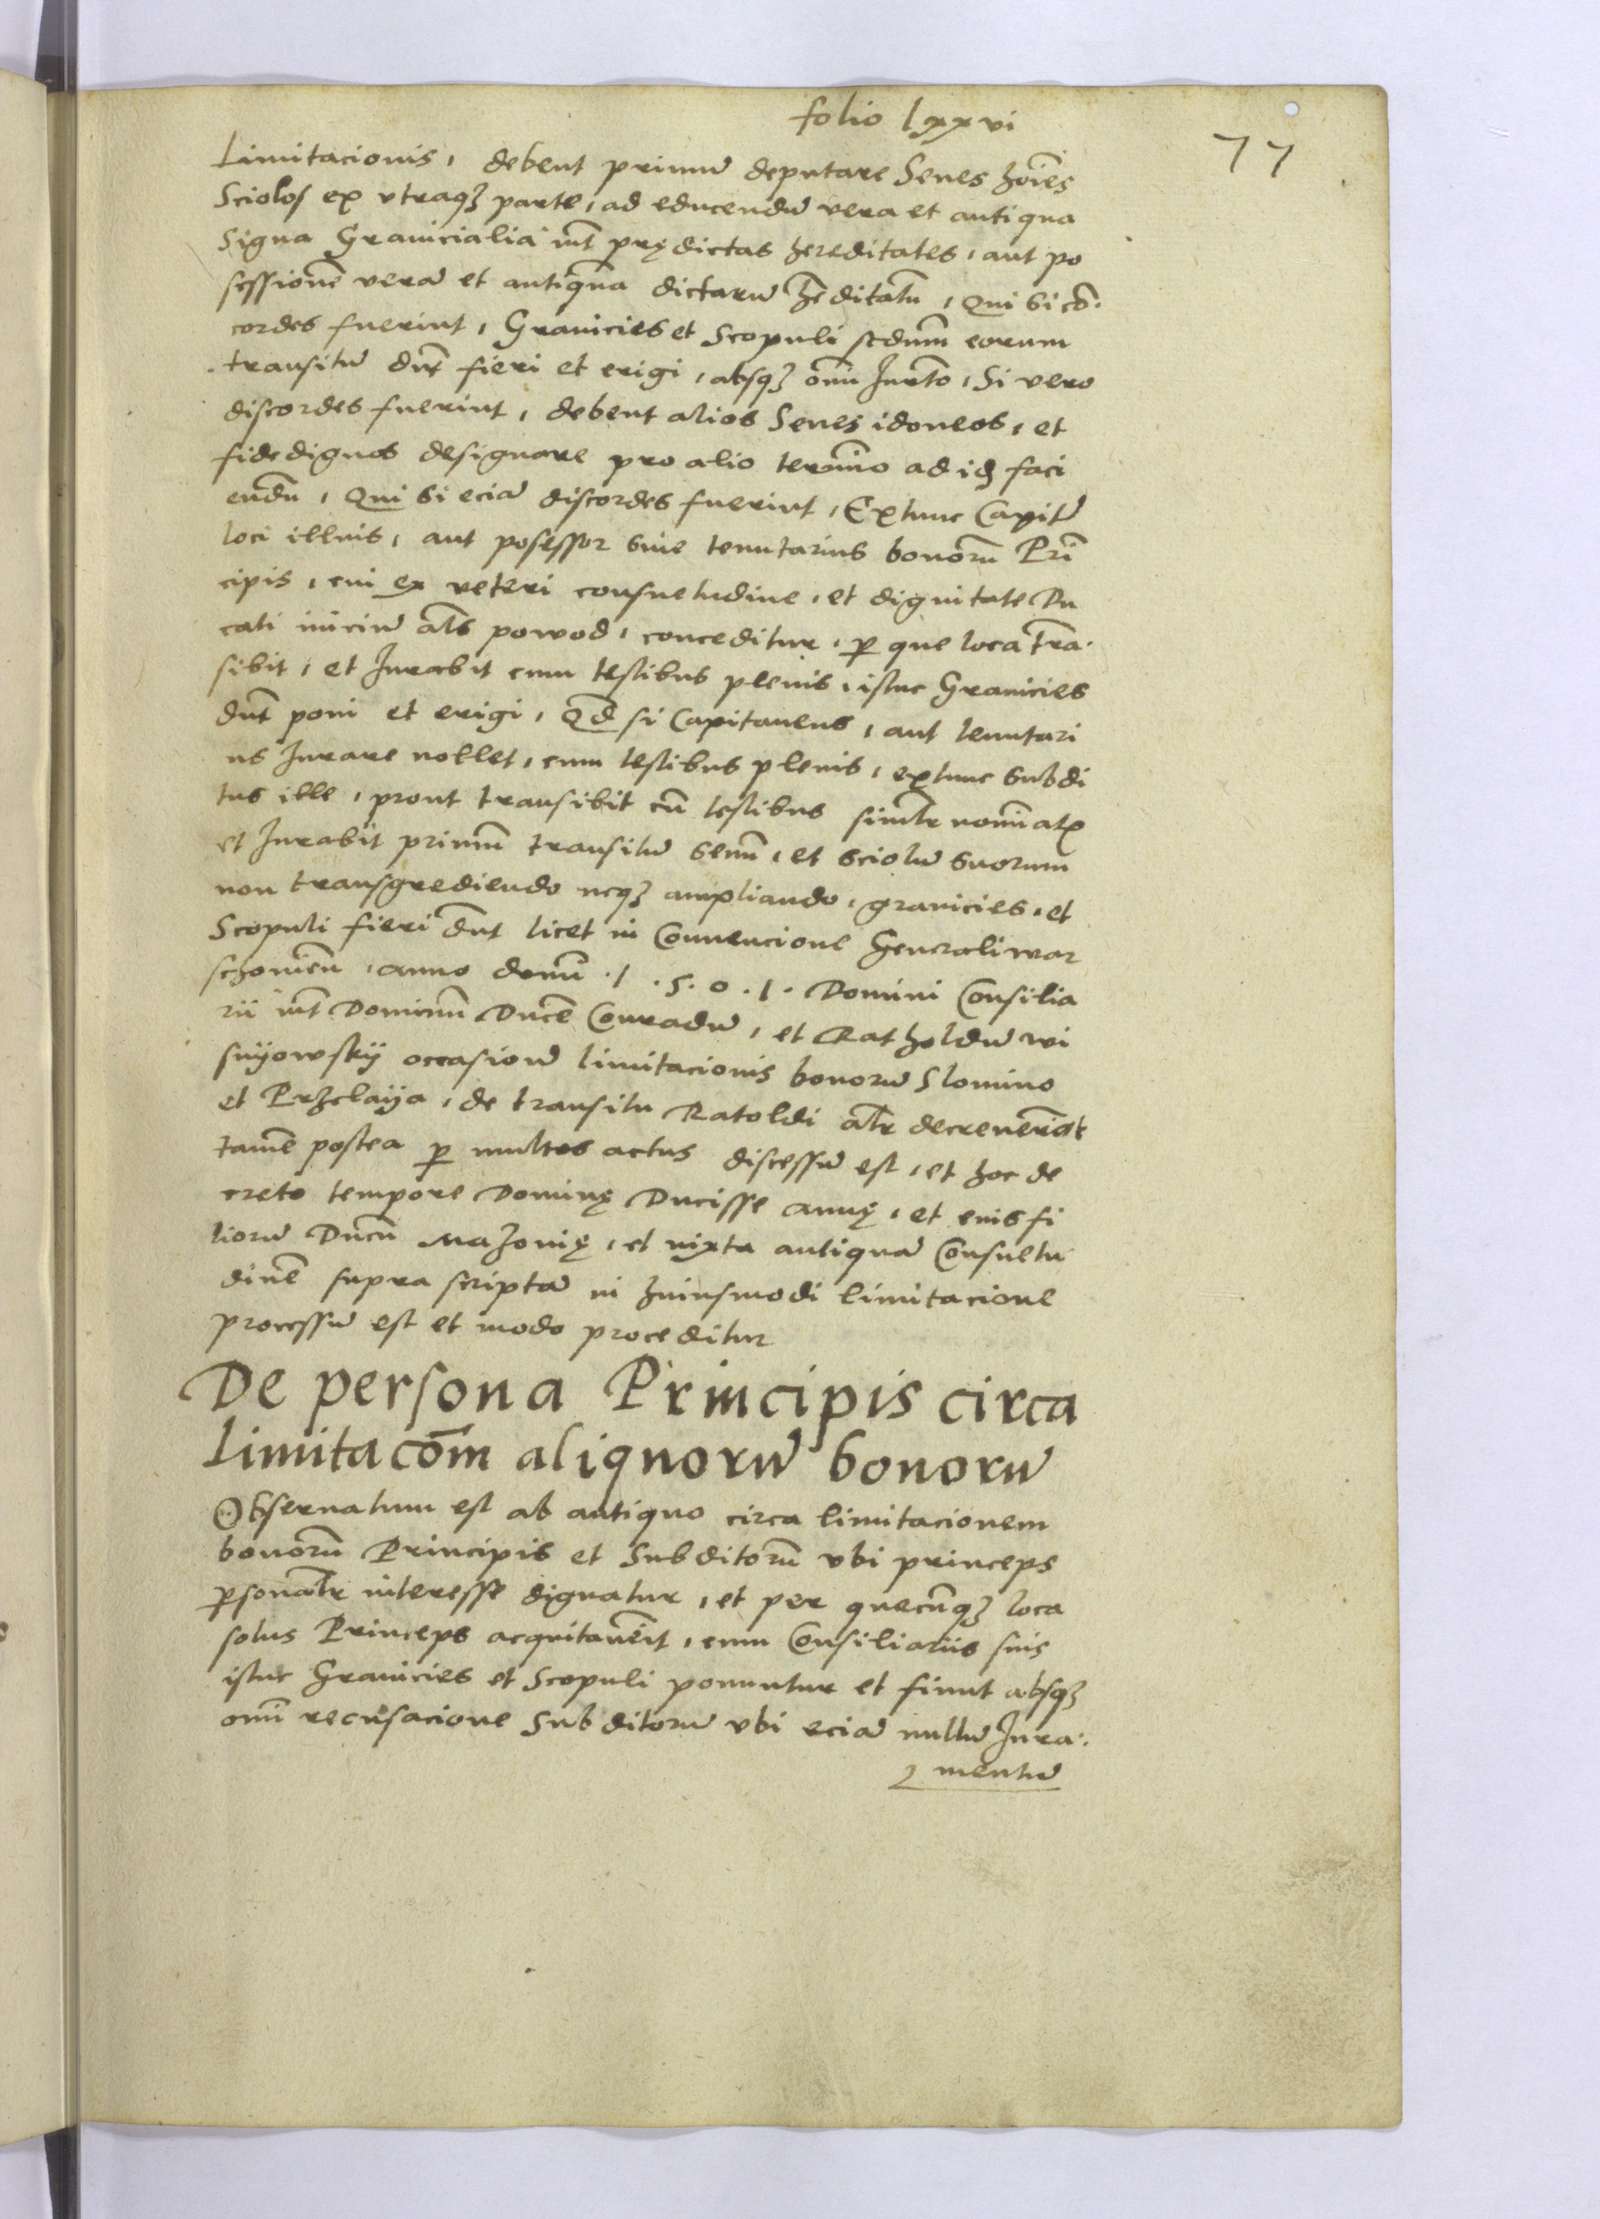 folio lxxvi
77
Limitacionis, debent primũ deputare Senes hoĩes
Sciolos ex vtraqȝ parte, ad educendũ vera et antiqua
Signa Granicialia int̃ prędictas hereditates, aut po
sessionẽ verã et antiquã dictarũ hẽditatũ, Qui si cõ
cordes fuerint, Granicies et Scopuli scdum̃ eorum
transitũ dñt fieri et erigi, absqȝ omĩ Jurto, Si vero
discordes fuerint, debent alios Senes idoneos, et
fide dignos designare pro alio termĩno ad id faci
endũ, Qui si eciã discordes fuerint, Extunc Capits̃
loci illius, aut posessor siue tenutarius bonorũ Prĩ
cipis, cui ex veteri consuetudine, et dignitate Du
cali iniciũ als̃ powod, conceditur, p que loca trã
sibit, et Jurabit cum testibus plenis, istuc Granicies
dñt poni et erigi, Qd̃ si Capitaneus, aut tenutari
us Jurare nollet, cum testibus plenis, extunc Subdi
tus ille, prout transibit cũ testibus simltr̃ nomĩat
et Jurabit primũ transitũ senũ, et sciolũ suorum
non transgrediendo neqȝ ampliando, granicies, et
Scopuli fieri dñt licet in Conuencione Generali war
schouieñ, anno domĩ .1.5.0.1. Domini Consilia
rii int̃ Dominũ Ducẽ Conradũ, et Ratholdũ wi
suyowskij occasionẽ limitacionis bonorũ Slomino
et Przelaija, de transitu Ratoldi altr̃ decreuerĩt
tamẽ postea p multos actus discessũ est, et hoc de
creto tempore Dominę Ducisse annę, et eius fi
liorũ Ducũ Mazonię, et iuxta antiquã Consuetu
dinẽ supra scriptã in huiusmodi limitacione
processũ est et modo proceditur
De persona Principis circa
Limitacõm aliquorũ bonorũ
Obseruatum est ab antiquo circa limitacionem
bonorũ Principis et Subditorũ vbi princeps
psonaltr̃ interesse dignatur, et per quecũqȝ loca
solus Princeps acquitauerĩt, cum Consiliariis suis
istuc Granicies et Scopuli ponuntur et fiunt absqȝ
omĩ recusacione Subditorũ vbi eciã nullũ Jura
mentũ